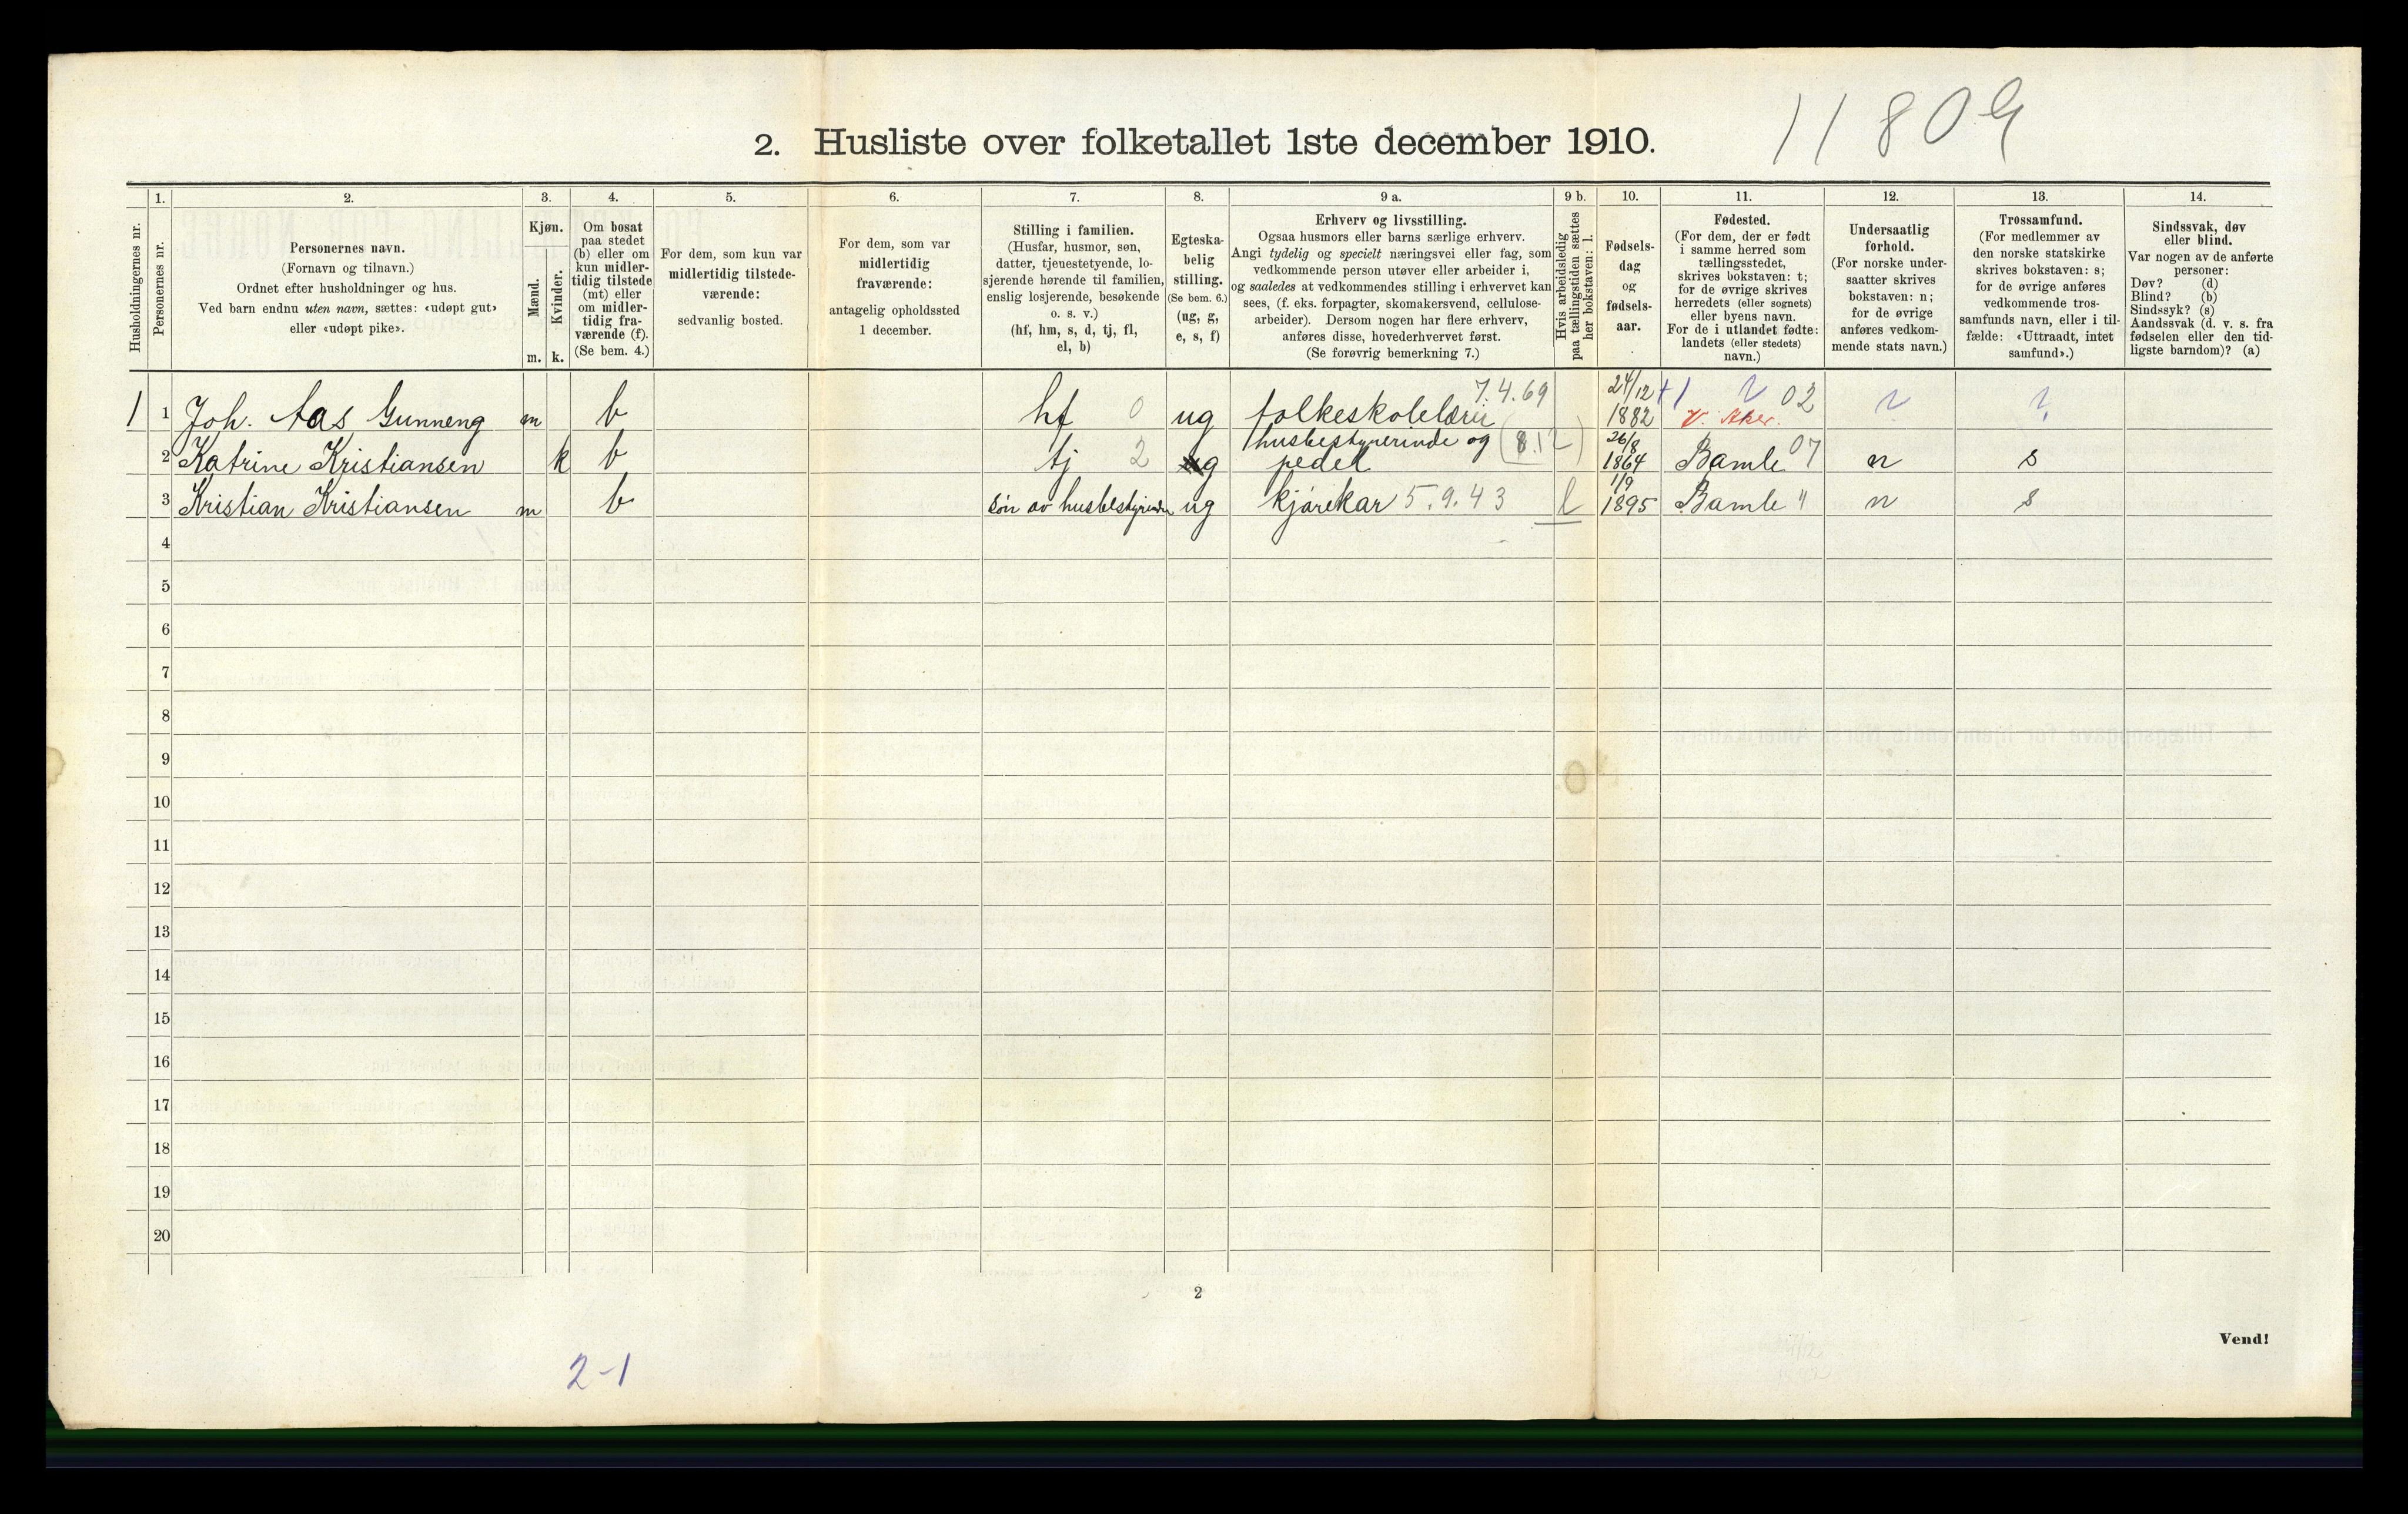 11809
2. Husliste over folketallet 1ste december 1910.
Husholdningernes nr.
1.
Personernes nr.
2.
Personernes navn.
(Fornavn og tilnavn.)
Ordnet efter husholdninger og hus.
Ved barn endnu uten navn, sættes: «udøpt gut»
eller «udøpt pike».
3.
Kjøn.
Mænd.
Kvinder.
m. k.
4.
Om bosat
paa stedet
(b) eller om
kun midler-
tidig tilstede
(mt) eller
om midler-
tidig fra-
værende (f).
(Se bem. 4.)
5.
For dem, som kun var
midlertidig tilstede-
værende:
sedvanlig bosted.
6.
For dem, som var
midlertidig
fraværende:
antagelig opholdssted
1 december.
7.
Stilling i familien.
(Husfar, husmor, søn,
datter, tjenestetyende, lo-
sjerende hørende til familien,
enslig losjerende, besøkende
o. s. v.)
(hf, hm, s, d, tj, fl,
el, b)
8.
Egteska-
belig
stilling.
(Se bem. 6.)
(ug, g,
e, s, f)
9 a.
Erhverv og livsstilling.
Ogsaa husmors eller barns særlige erhverv.
Angi tydelig og specielt næringsvei eller fag, som
vedkommende person utøver eller arbeider i,
og saaledes at vedkommendes stilling i erhvervet kan
sees, (f. eks. forpagter, skomakersvend, cellulose-
arbeider). Dersom nogen har flere erhverv,
anføres disse, hovederhvervet først.
(Se forøvrig bemerkning 7.)
9 b.
Hvis arbeidsledig
paa tællingstiden sættes
her bokstaven: l.
10.
Fødsels-
dag
og
fødsels-
aar.
11.
Fødested.
(For dem, der er født
i samme herred som
tællingsstedet,
skrives bokstaven: t;
for de øvrige skrives
herredets (eller sognets)
eller byens navn.
For de i utlandet fødte:
landets (eller stedets)
navn.)
12.
Undersaatlig
forhold.
(For norske under-
saatter skrives
bokstaven: n;
for de øvrige
anføres vedkom-
mende stats navn.)
13.
Trossamfund.
(For medlemmer av
den norske statskirke
skrives bokstaven: s;
for de øvrige anføres
vedkommende tros-
samfunds navn, eller i til-
fælde: «Uttraadt, intet
samfund».)
14.
Sindssvak, døv
eller blind.
Var nogen av de anførte
personer:
Døv? (d)
Blind? (b)
Sindssyk? (s)
Aandssvak (d. v. s. fra
fødselen eller den tid-
ligste barndom)? (a)
1 1 Joh. Aas Gunneng m b hf 0 ug folkeskolelærer 7.4.69 24/12 1882 +1 ? 02 V. Aker. ? ?
2 Katrine Kristiansen k b tj 2 g husbestyrerinde og pedel (8.12) 26/8 1864 Bamle 07 n s
3 Kristian Kristiansen m b søn av husbestyrinden ug kjørekar 5.9.43 l 1/9 1895 Bamle " n s
4
5
6
7
8
9
10
11
12
13
14
15
16
17
18
19
20
2
Vend!
2-1